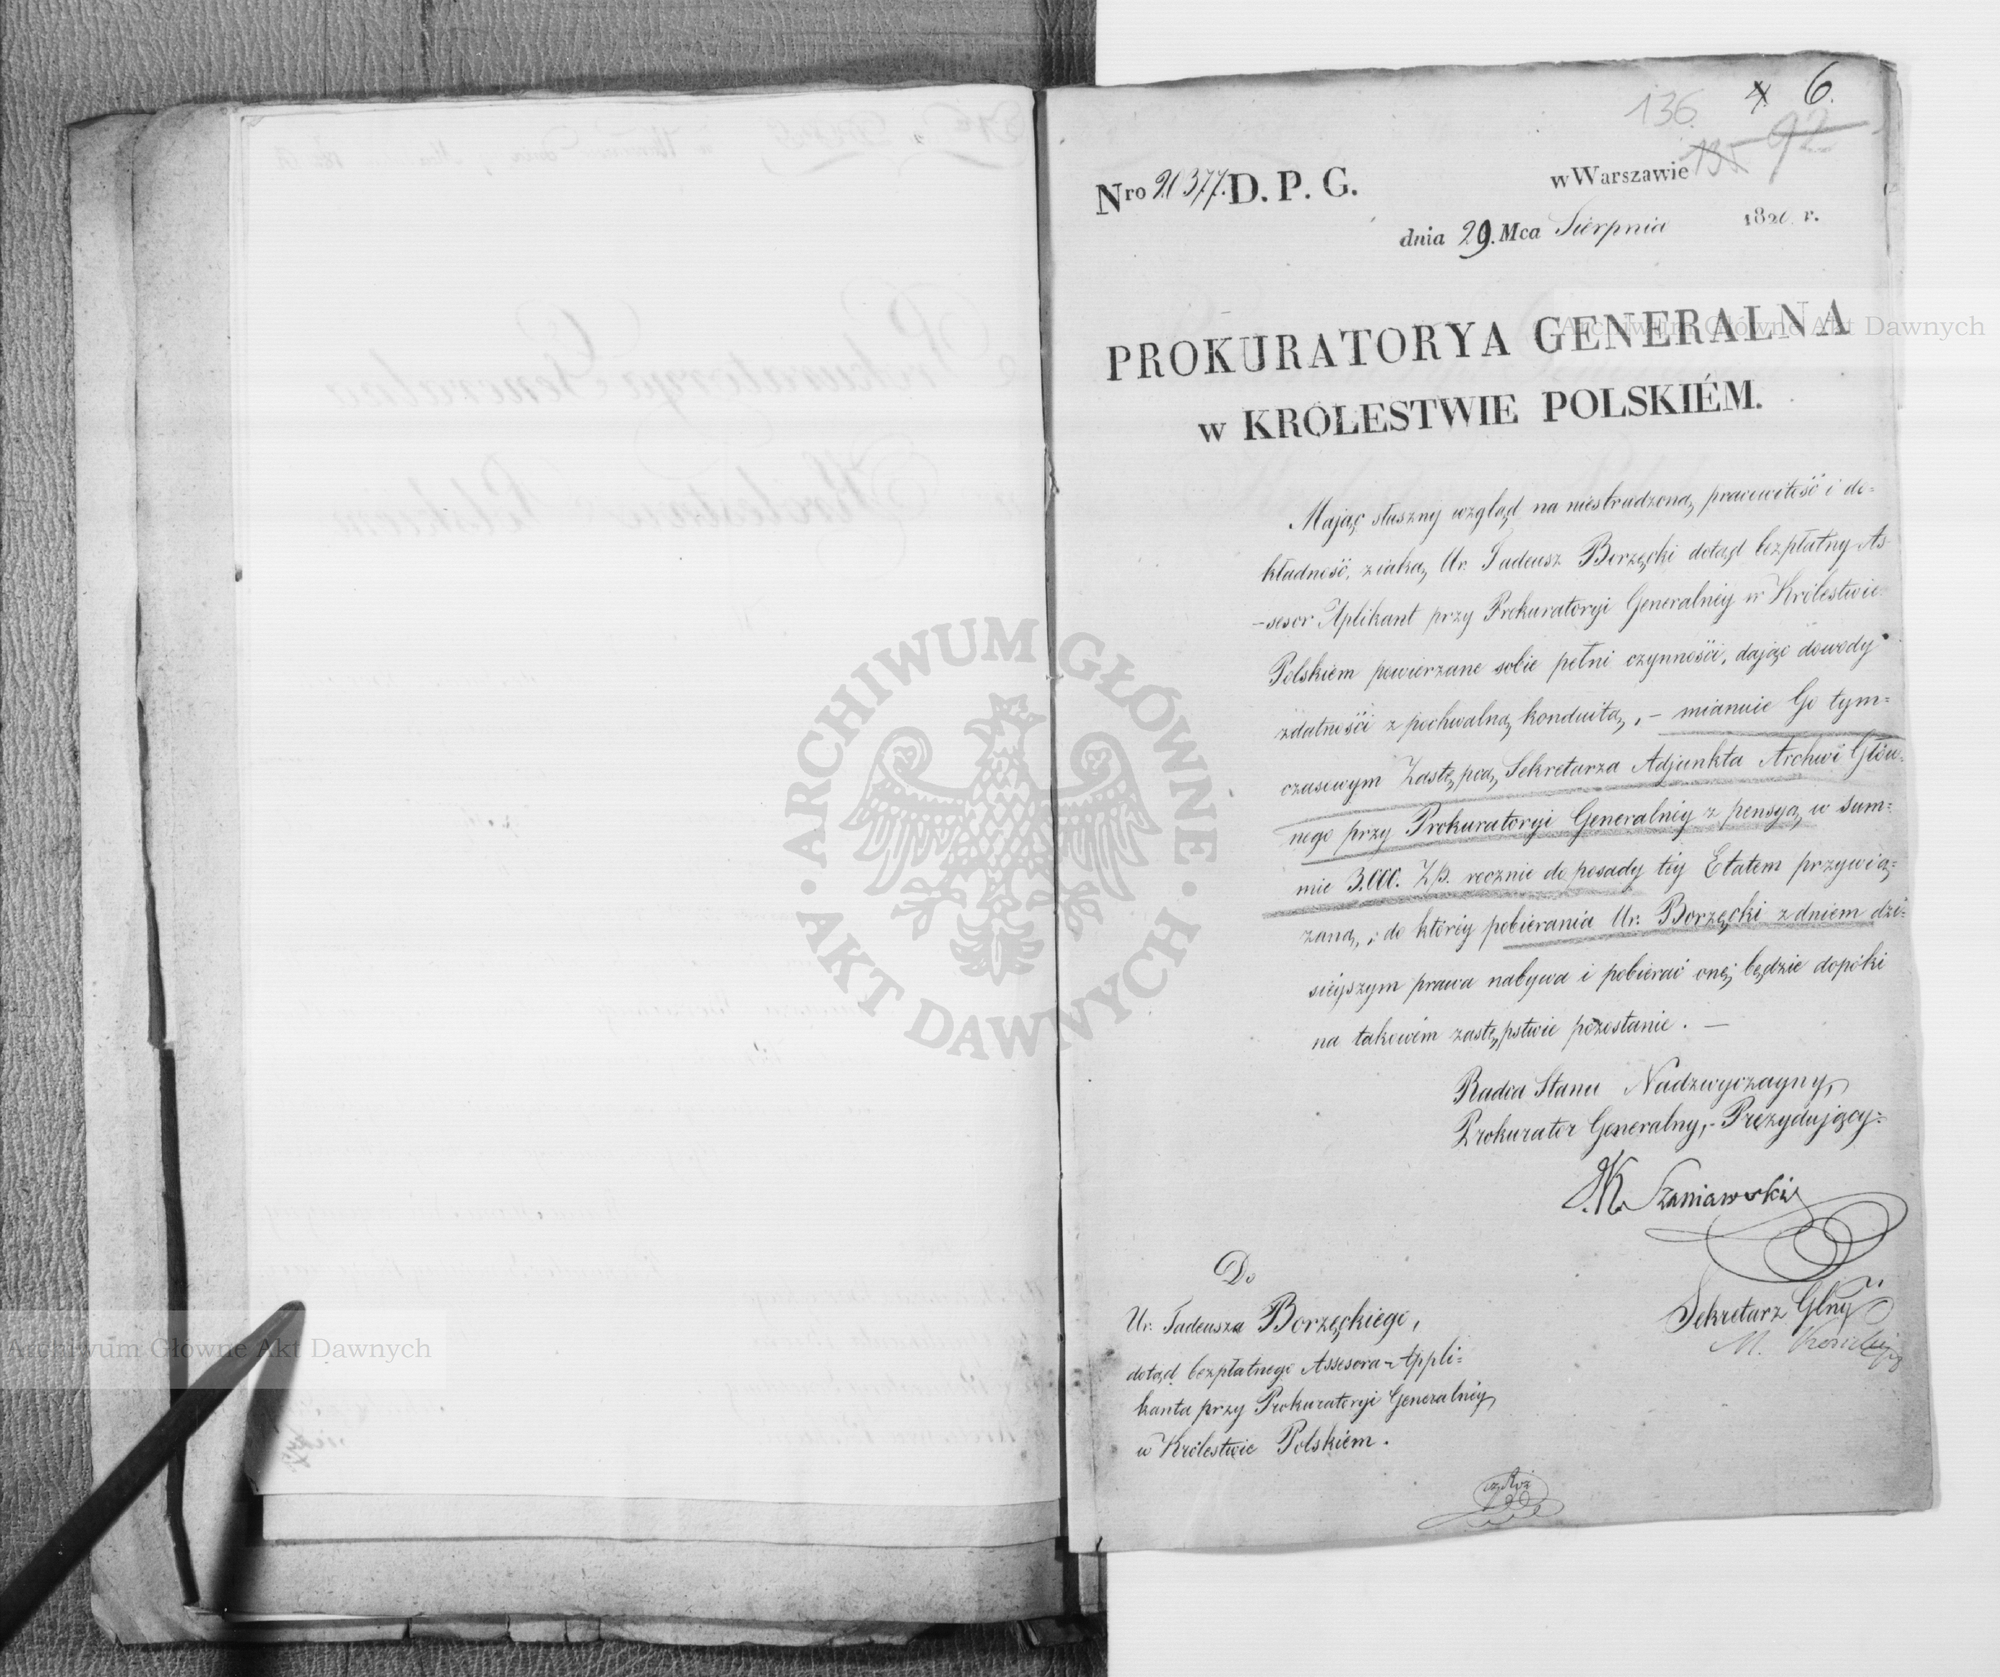 136. 4. 6.
135 92
Nro 20377. D. P. G. w Warszawie
dnia 29. Mca Sierpnia 1820. r.
PROKURATORYA GENERALNA
w KRÓLESTWIE POLSKIÉM.
Mając słuszny wzgląd na niestrudzoną pracowitość i do-
kładność, z iaką Ur. Tadeusz Borzęcki dotąd bezpłatny As-
-sesor Aplikant przy Prokuratoryi Generalnéy w Królestwie
Polskiem powierzane sobie pełni czynności, dając dowody
zdatności z pochwalną konduitą, - mianuie Go tym=
czasowym Zastępcą Sekretarza Adjunkta Archwi Głów-
nego przy Prokuratoryi Generalnéy z pensyą w sum=
mie 3.000. Zł. rocznie do posady téy Etatem przywią=
zaną, do któréy pobierania Ur. Borzęcki z dniem dzi=
sieyszym prawa nabywa i pobierać onę będzie dopóki
na takowém zastępstwie pozostanie. —
Radca Stanu Nadzwyczayny,
Prokurator Generalny, - Prezydujący:
J.K. Szaniawski
Do
Ur. Tadeusza Borzęckiego,
dotąd bezpłatnego Assesora-Appli=
kanta przy Prokuratoryi Generalnéy
w Królestwie Polskiem.
Sekretarz Glny
M.
ARCHIWUM GŁÓWNE AKT DAWNYCH
Archiwum Główne Akt Dawnych
Archiwum Główne Akt Dawnych